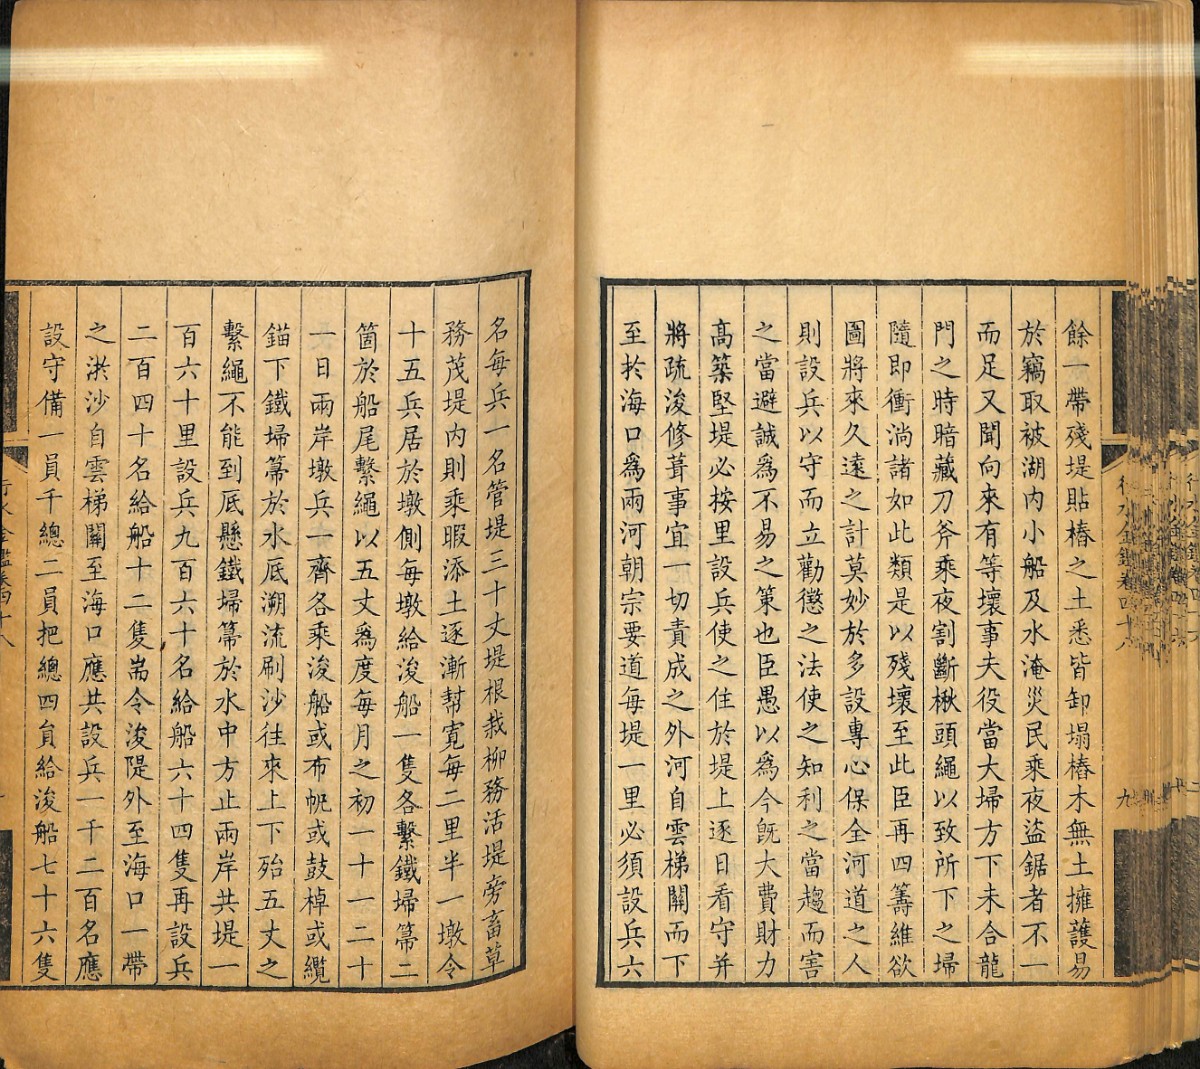 餘一帶殘堤貼樁之土悉皆卸塌樁木無土擁護易
於竊取被湖內小船及水淹災民乘夜盜鋸者不一
而足又聞向來有等壞事夫役當大埽方下未合龍
門之時暗藏刀斧乘夜割斷楸頭繩以致所下之埽
隨即衝淌諸如此類是以殘壞至此臣再四籌維欲
圖將來久遠之計莫妙於多設專心保全河道之人
則設兵以守而立勸懲之法使之知利之當趨而害
之當避誠為不易之策也臣愚以為今旣大費財力
高築堅堤必按里設兵使之住於堤上逐日看守并
將疏浚修葺事宜一切責成之外河自雲梯關而下
至於海口爲兩河朝宗要道每堤一里必須設兵六
名每兵一名管堤三十丈堤根栽柳務活堤旁畜草
務茂堤內則乘暇添土逐漸幫寬每二里半一墩令
十五兵居於墩側每墩給浚船一隻各繫鐵埽箒二
箇於船尾繫繩以五丈爲度每月之初一十一二十
一日兩岸墩兵一齊各乘浚船或布帆或鼓棹或纜
錨下鐵埽箒於水底溯流刷沙往來上下殆五丈之
繫繩不能到底懸鐵埽箒於水中方止兩岸共堤一
百六十里設兵九百六十名給船六十四隻再設兵
二百四十名給船十二隻耑令浚隄外至海口一帶
之洪沙自雲梯關至海口應共設兵一千二百名應
設守備一員千總二員把總四員給浚船七十六隻
行水金鑑卷四十八
九